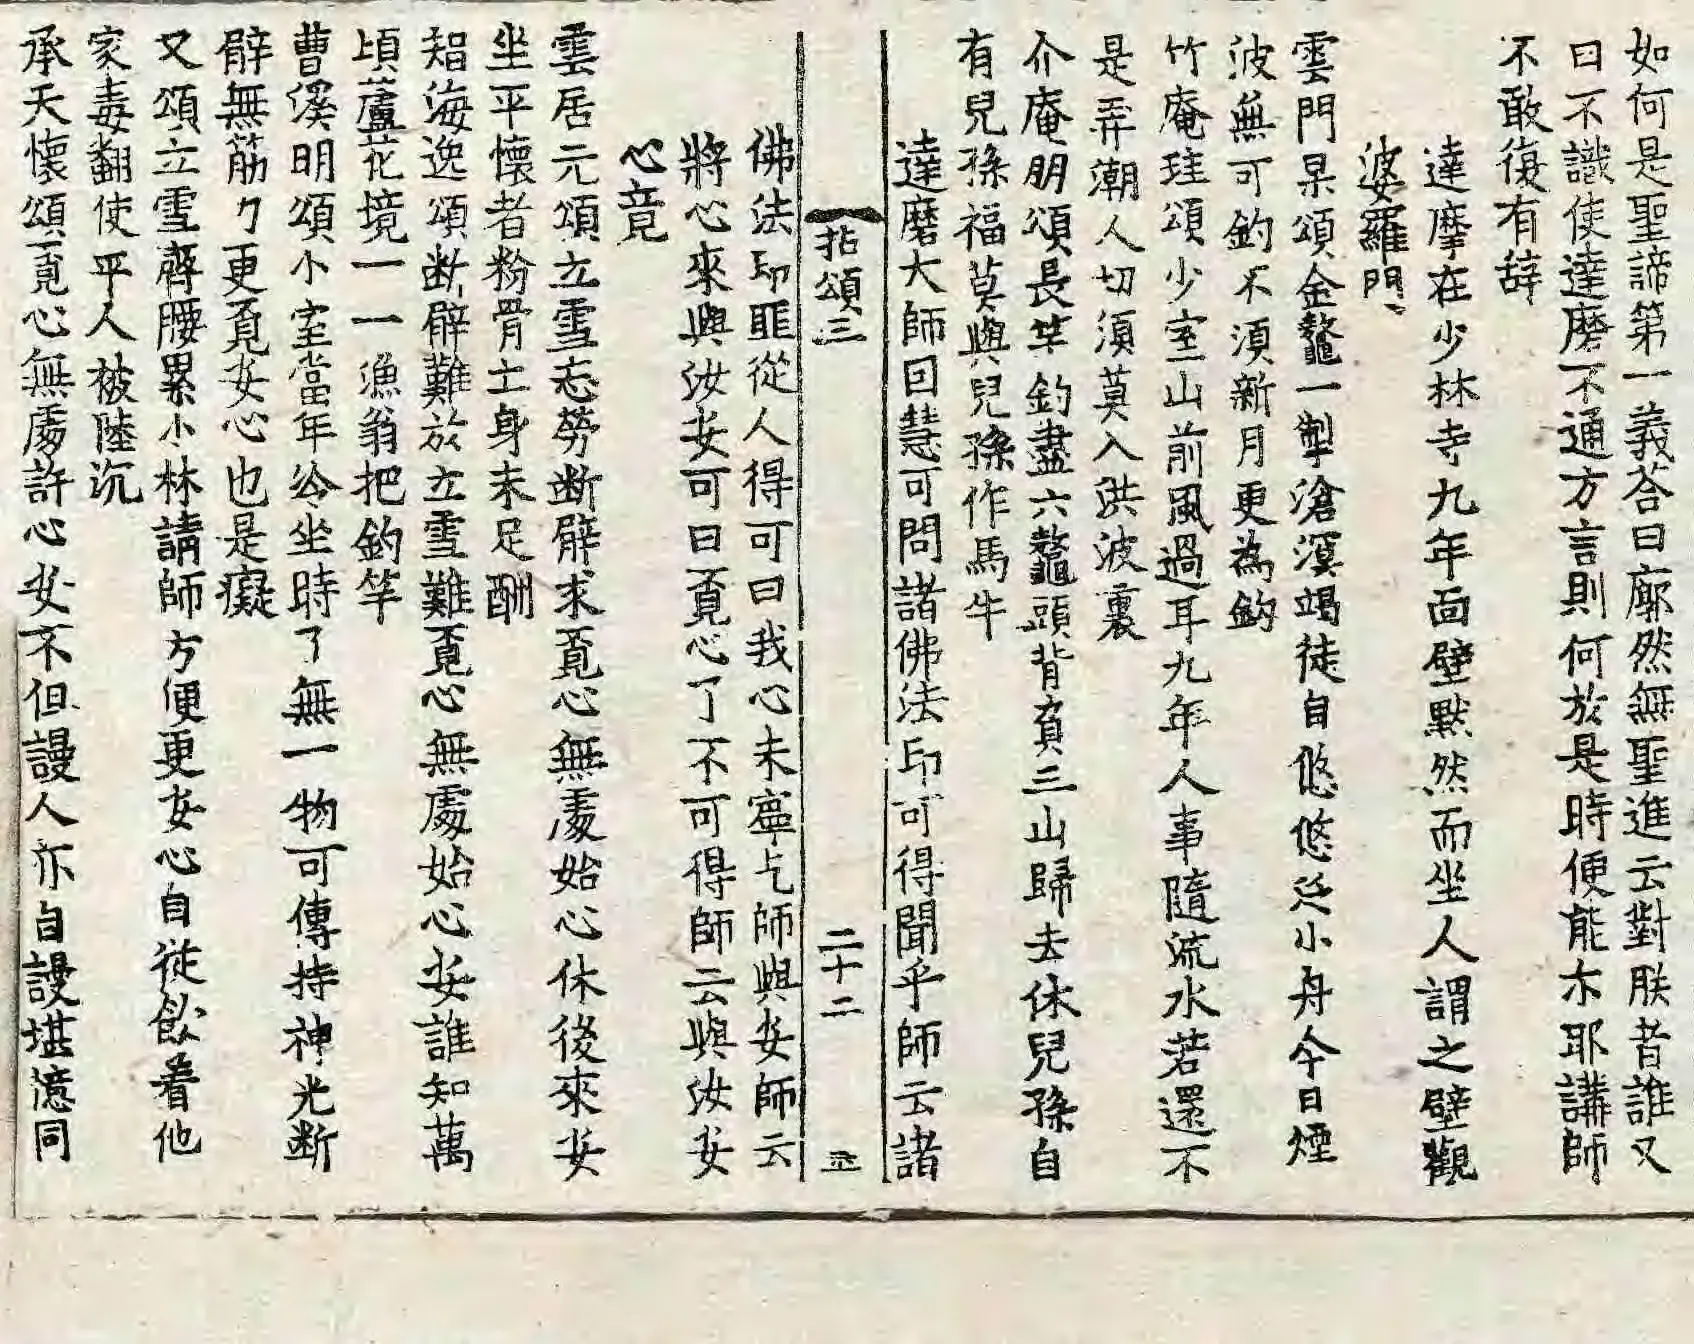 如何是聖諦第一義荅曰廓然無聖進云對朕者誰又
曰不識使達磨不通方言則何於是時便能尒耶講師
不敢復有辞
達摩在少林寺九年面壁默然而坐人謂之壁觀
婆羅門
雲門杲頌金鼇一掣滄溟竭徒自悠悠泛小舟今日煙
波無可釣不須新月更為鈎
竹庵珪頌少室山前風過耳九年人事隨流水若還不
是弄潮人切須莫入洪波裏
介庵朋頌長竿釣盡六鼇頭背負三山歸去休兒孫自
有兒孫福莫與兒孫作馬牛
達磨大師因慧可問諸佛法印可得聞乎師云諸
拈頌三 二十二
佛法印匪從人得可曰我心未寧乞師與安師云
將心來與汝安可曰覔心了不可得師云與汝安
心竟
雲居元頌立雪忘勞斷臂求覔心無處始心休後來安
坐平懷者粉骨士身未足酬
智海逸頌斷臂難於立雪難覔心無處始心安誰知萬
頃蘆花境一一漁翁把釣竿
曹溪明頌小室當年冷坐時了無一物可傳持神光斷
臂無筋力更覔安心也是癡
又頌立雪齊腰累小林請師方便更安心自從飲着他
家毒翻使平人被陸沉
承天懷頌覔心無處許心安不但謾人亦自謾堪憶同